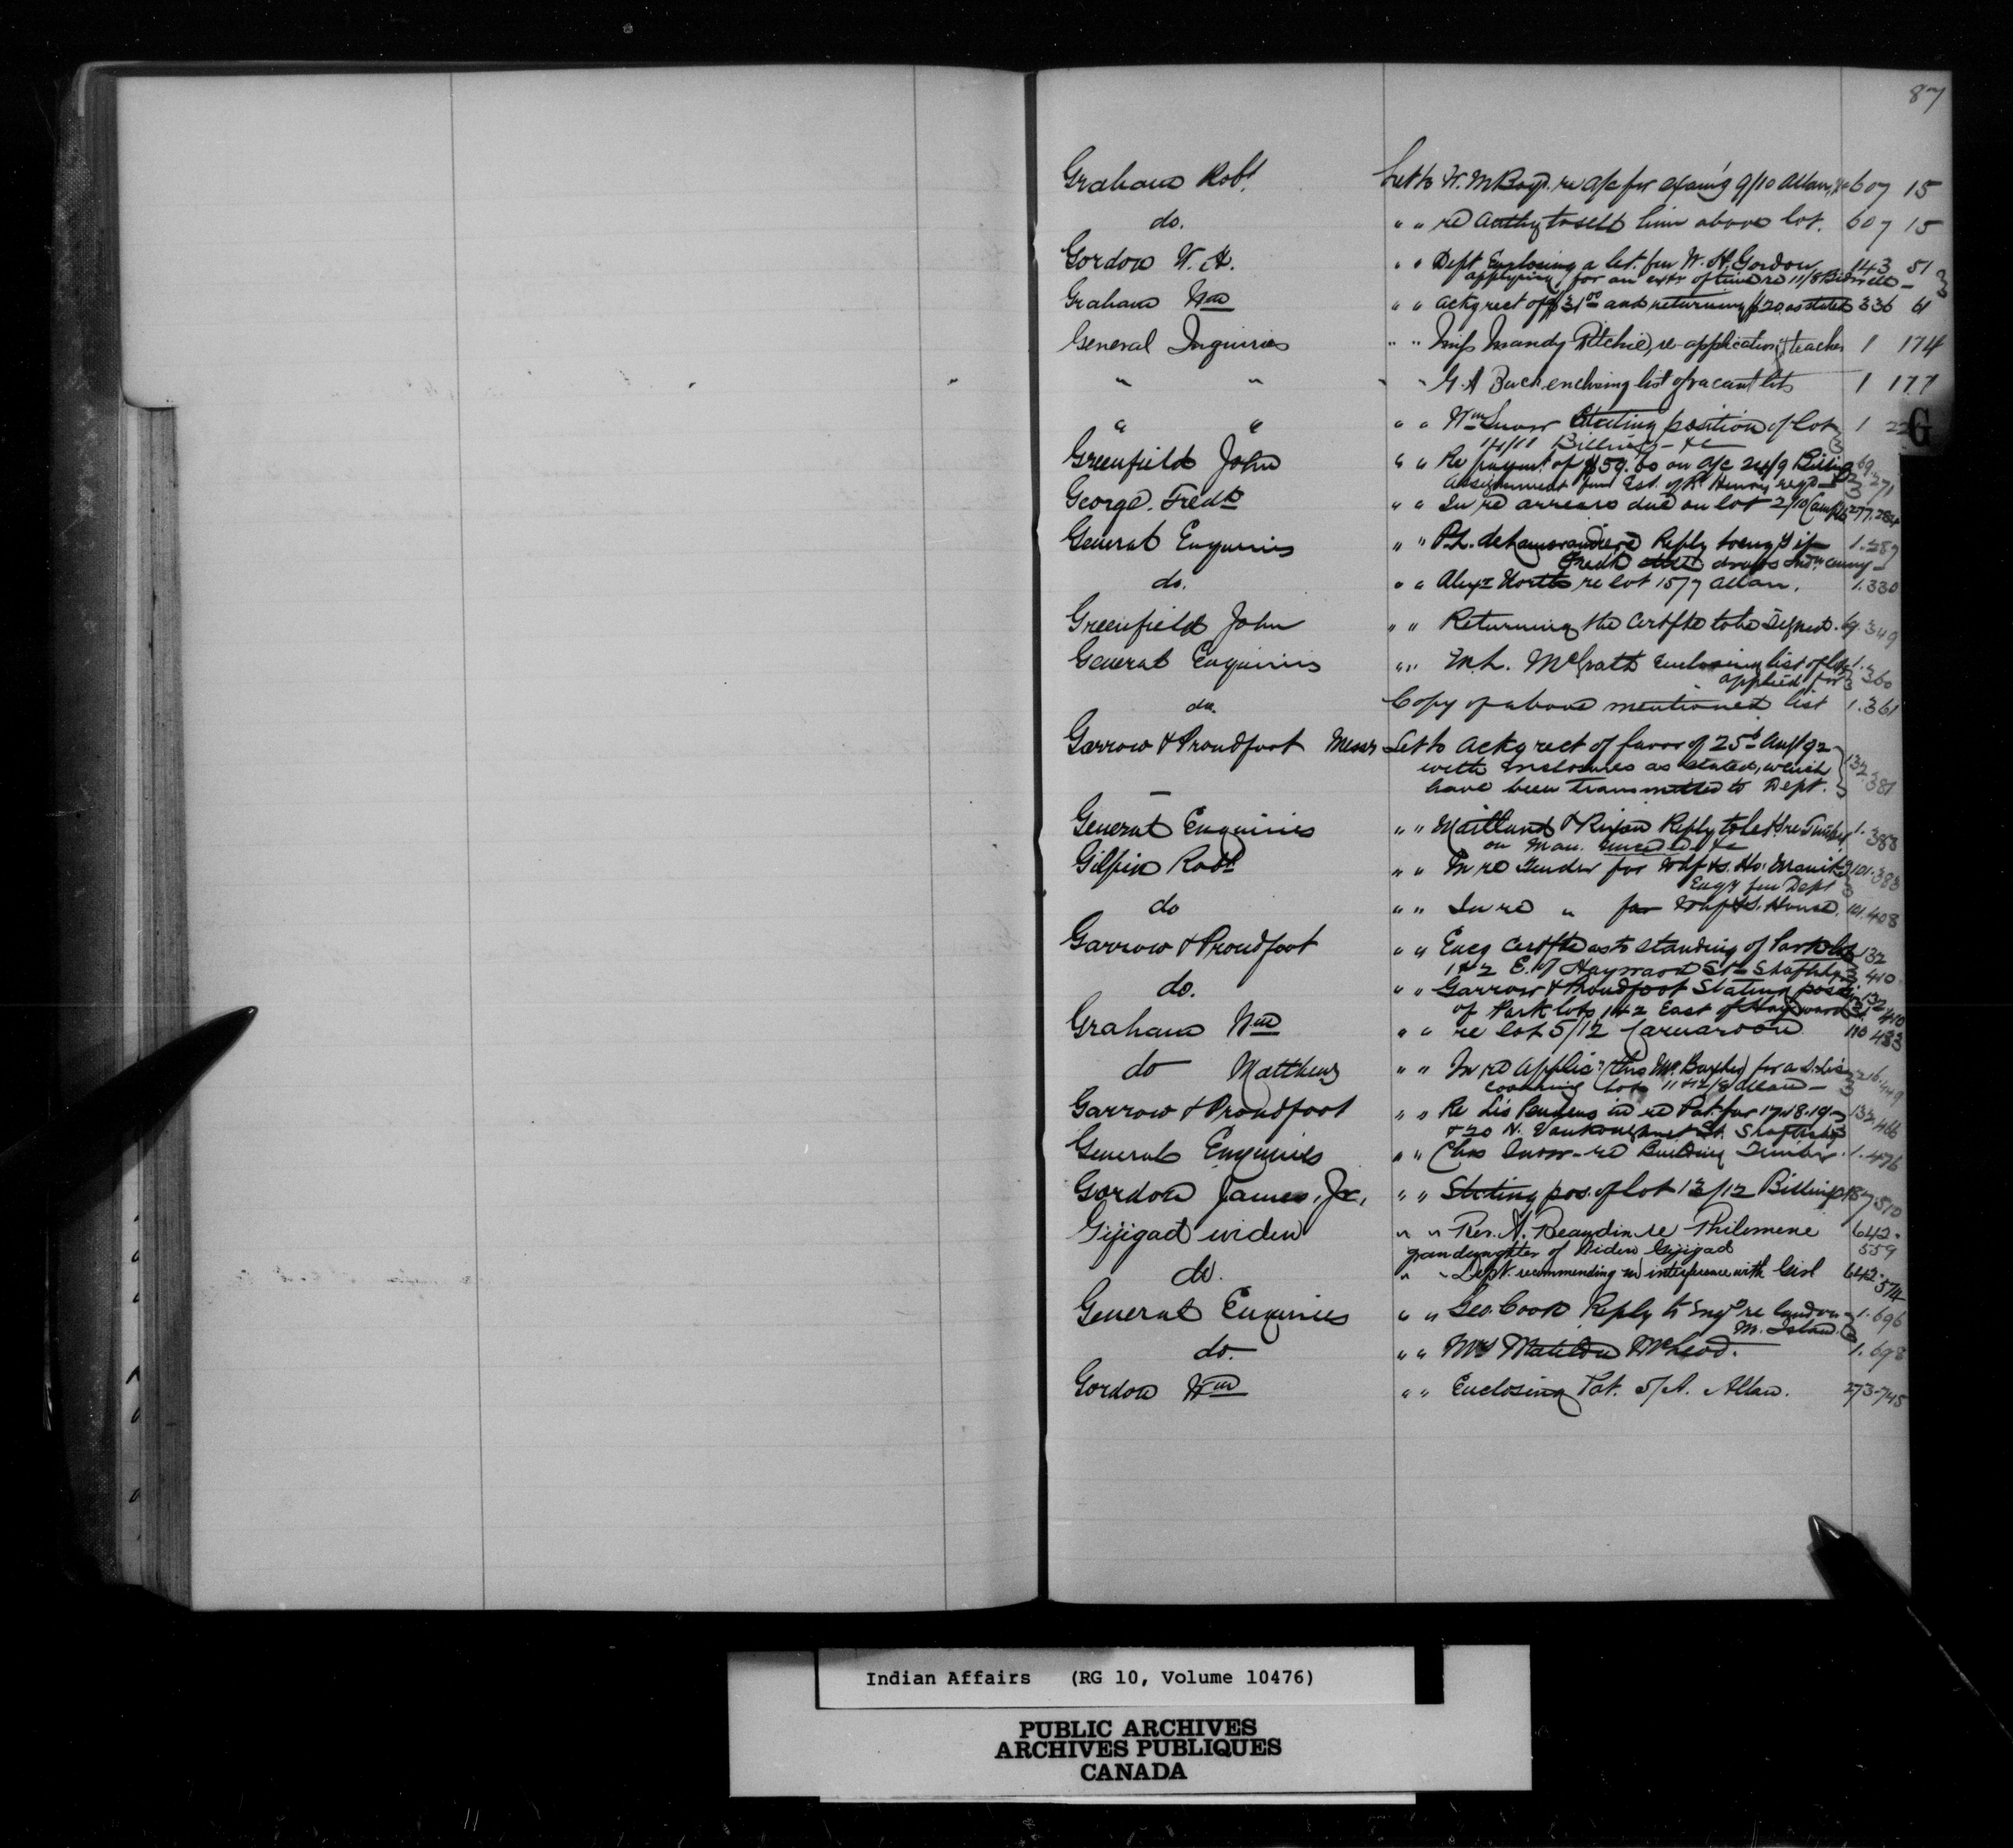 87
Graham Robt. Let to W. M Boyd. re a/c for exam'g 9/10 Allan, 607 15
do. " " re authy to sell him above lot. 607 15
Gordon W. H. " " Dept Enclosing a let. fm W. H. Gordon 143 51
applying for an extn of time re 11/8
Graham Wm " " ackg rect of $31.00 and returning $20 as stated 336 61
General Inquiries " " Miss Mandy Ritchie, re application teacher 1 174
" " " " G. A Buck enclosing list of vacant lots 1 177
" " " " Wm Stating position of lot 1 22
14/11 Billings - &c
G
Greenfield John " " Re payment of $59.00 on a/c 24/9 Billings 69.
assignment from Est. of R. Henry regd 271
George. Fredk " " In re arrears due on lot 2/10 Campbell 277.284
General Enquiries " " P. L. de Lamorandiere Reply to enqy if 1.
Fredk draws Indn anny -
do. " " Alexr North re lot 15/7 Allan. 1.330
Greenfield John " " Returning the Certfte to be Signed. 69.349
General Enquiries " " M. L. McGrath Enclosing list of lots 1.
applied for 360
do. Copy of above mentioned list 1.361
Garrow & Proudfoot Messrs Let to ackg rect of favor of 25th Aug/92
with Enclosures as stated, which 132
have been transmitted to Dept. 381
General Enquiries " " Maitland & Rixon Reply to let re Timber 1.388
on Man. &c
Gilpin Robt " " In re Tender for Whf & S. Ho. Manitg 101.383
Engy fm Dept
do " " In re " for Whf & S. House. 101.408
Garrow & Proudfoot " " Encg Certfte as to standing of Park lots 132
1 & 2 E. of Hayward St. Shaftsby 410.
do. " " Garrow & Proudfoot Stating posn 132
of Park lots 1 & 2 East of Hayward 410
Graham Wm " " re lot 5/12 Carnarvon 110 433
do Matthew " " In re Applic: (thro Mr. Baxter) for a S. Lis
covering lots 11 & 12/8 Allan - 449
Garrow & Proudfoot " " Re Lis Pendens in re Pat. for 17.18.19. 132.466
& 20 N. Vankoughnet St. Shaftsby
General Enquiries " " Chas re Building Timber. 1.476
Gordon James, Jr, " " Stating pos. of lot 13/12 Billings 187.510
Gijigad widow " " Rev. A. Beaudin re Philomene 642.
grandaughter of Widow Gijigad 559
do. " " Dept. recommending no interference with Girl 642.574
General Enquiries " " Geo. Cook Reply to Enqy re land on 1.696
M. Island.
do. " " Mrs Matilda McLeod. 1.698
Gordon Wm " " Enclosing Pat. 5/A. Allan. 273-745
Indian Affairs (RG 10, Volume 10476)
PUBLIC ARCHIVES
ARCHIVES PUBLIQUES
CANADA